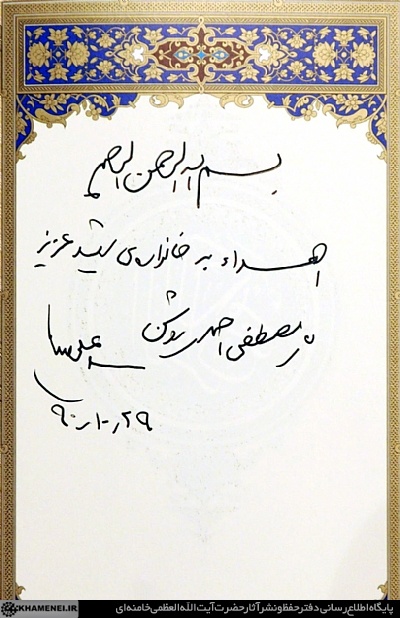 بسم الله الرحمن الرحیم
اهداء به خانواده‌ی شهید عزیز
مصطفی احمدی روشن
سید علی خامنه‌ای
۹۰/۱۰/۲۹
KHAMENEI.IR
پایگاه اطلاع رسانی دفتر حفظ و نشر آثار حضرت آیت الله العظمی خامنه‌ای